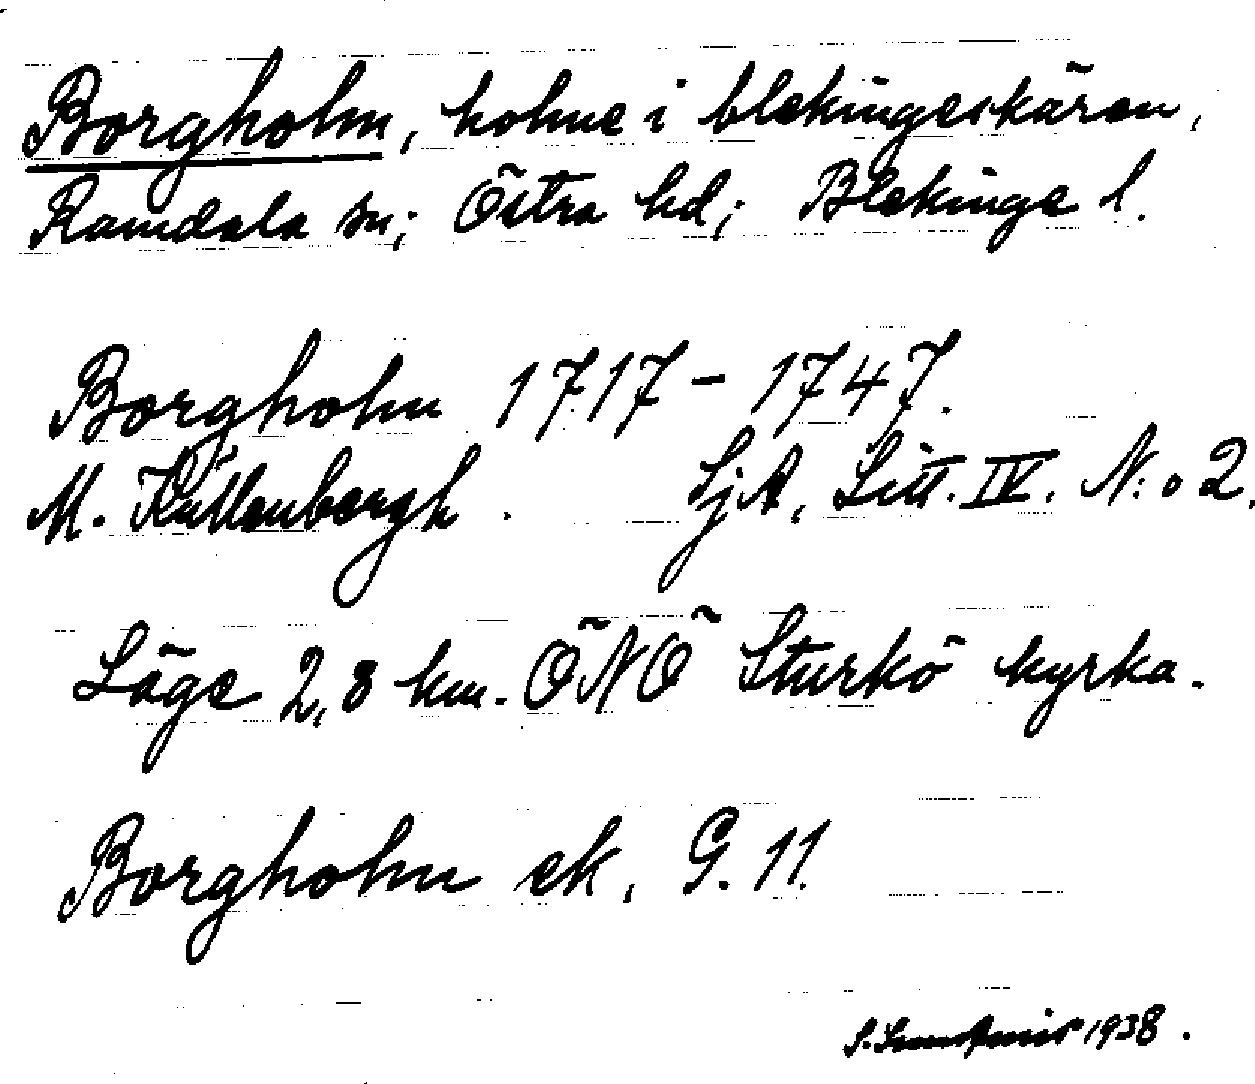 Borgholm, holme i blekingeskären,
Ramdala sn; Östra hd; Blekinge l.
Borgholm 1717-1747.
M. Källenbergh. SjA, Litt. IV. N:o 2.
Läge 2,8 km. ÖNÖ Sturkö kyrka.
Borgholm ek. G. 11.
S. 1938.